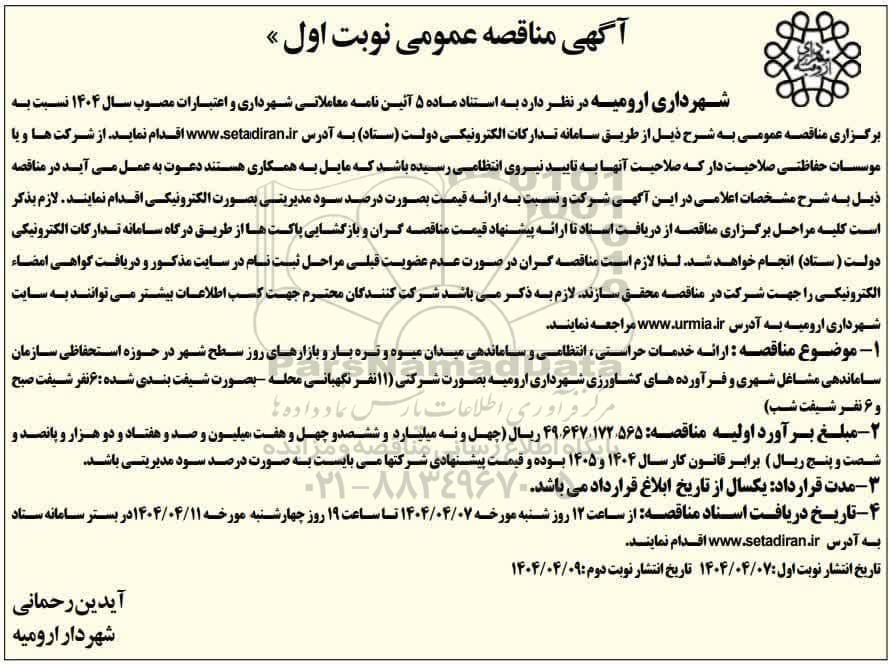 آگهی مناقصه عمومی نوبت اول »
شهرداری ارومیه
شهرداری ارومیه در نظر دارد به استناد ماده ۵ آئین نامه معاملاتی شهرداری و اعتبارات مصوب سال ۱۴۰۴ نسبت به
برگزاری مناقصه عمومی به شرح ذیل از طریق سامانه تدارکات الکترونیکی دولت (ستاد) به آدرس www.setadiran.ir اقدام نماید. از شرکت ها و یا
موسسات حفاظتی صلاحیت دار که صلاحیت آنها به تایید نیروی انتظامی رسیده باشد که مایل به همکاری هستند دعوت به عمل می آید در مناقصه
ذیل به شرح مشخصات اعلامی در این آگهی شرکت و نسبت به ارائه قیمت بصورت درصد سود مدیریتی بصورت الکترونیکی اقدام نمایند. لازم بذکر
است کلیه مراحل برگزاری مناقصه از دریافت اسناد تا ارائه پیشنهاد قیمت مناقصه گران و بازگشایی پاکت ها از طریق درگاه سامانه تدارکات الکترونیکی
دولت (ستاد) انجام خواهد شد. لذا لازم است مناقصه گران در صورت عدم عضویت قبلی مراحل ثبت نام در سایت مذکور و دریافت گواهی امضاء
الکترونیکی را جهت شرکت در مناقصه محقق سازند. لازم به ذکر می باشد شرکت کنندگان محترم جهت کسب اطلاعات بیشتر می توانند به سایت
شهرداری ارومیه به آدرس www.urmia.ir مراجعه نمایند.
۱- موضوع مناقصه : ارائه خدمات حراستی، انتظامی و ساماندهی میدان میوه و تره بار و بازارهای روز سطح شهر در حوزه استحفاظی سازمان
ساماندهی مشاغل شهری و فرآورده های کشاورزی شهرداری ارومیه بصورت شرکتی (۱۱نفر نگهبانی محله -بصورت شیفت بندی شده :۶نفر شیفت صبح
و ۶ نفر شیفت شب)
۲-مبلغ برآورد اولیه مناقصه: ۴۹،۶۴۷،۱۷۲،۵۶۵ ریال (چهل و نه میلیارد و ششصدو چهل و هفت،میلیون و صد و هفتاد و دو هزار و پانصد و
شصت و پنج ریال) برابر قانون کار سال ۱۴۰۴ و ۱۴۰۵ بوده و قیمت پیشنهادی شرکتها می بایست به صورت درصد سود مدیریتی باشد.
۳-مدت قرارداد: یکسال از تاریخ ابلاغ قرارداد می باشد.
۴-تاریخ دریافت اسناد مناقصه: از ساعت ۱۲ روز شنبه مورخه ۱۴۰۴/۰۴/۰۷ تا ساعت ۱۹ روز چهارشنبه مورخه ۱۴۰۴/۰۴/۱۱در بستر سامانه ستاد
به آدرس www.setadiran.ir اقدام نمایند.
تاریخ انتشار نوبت اول :۱۴۰۴/۰۴/۰۷ تاریخ انتشار نوبت دوم :۱۴۰۴/۰۴/۰۹
آیدین رحمانی
شهردار ارومیه
ParsNamadData
مرکز فرآوری اطلاعات پارس نماد داده ها
پایگاه اطلاع رسانی مناقصه و مزایده
۰۲۱-۸۸۳۴۹۶۷۰-۵